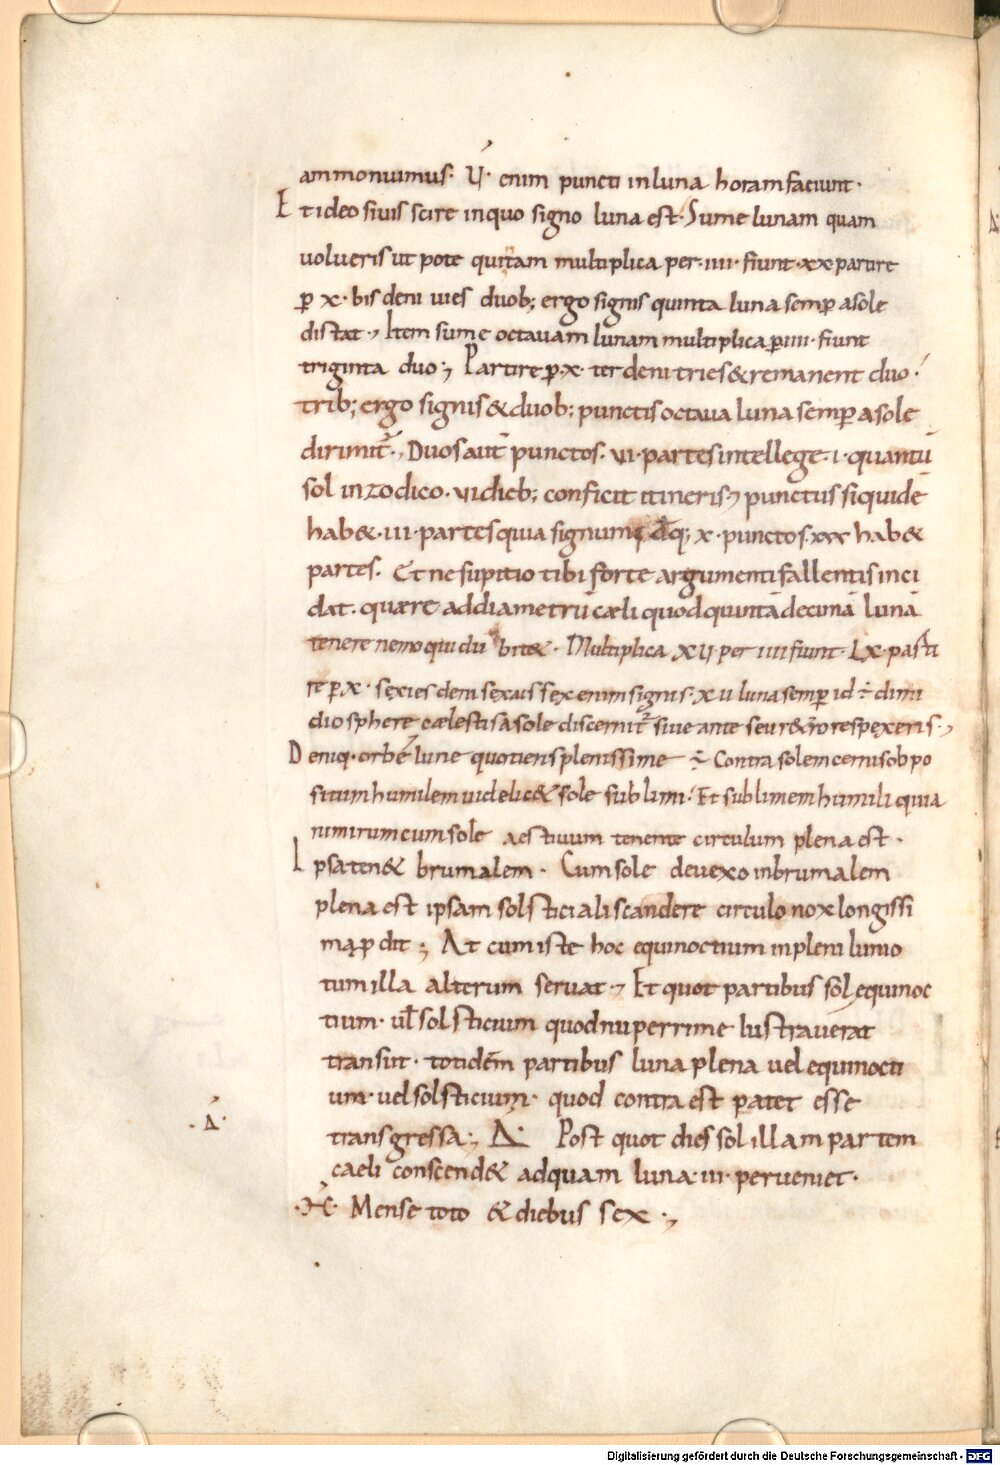 ammonuimus· V́· enim puncti inluna horamfaciunt·
Et ideo siuis scire inquo signo luna est· Sume lunam quam
uolueris ut pote quintam multiplica per·iiii· fiunt·xx partire
ꝑ x· bis deni uies duob; ergo signis quinta luna semꝑ asole
distat·, Item sume octauam lunam multiplica ꝑ iiii· fiunt
triginta duo;, Partire ꝑ·x· ter deni tries & remanent duo·
trib; ergo signis & duob; punctis octaua luna semꝑ asole
dirimit᷑·, Duos aut̄ punctos· vi· partes intellege·i· quantū
sol inzodico· vi dieb; conficit itineris, punctus siquidē
hab&·iii· partes quia signum x· punctos·xxx hab&
partes· Et ne supitio tibi forte argumenti fallentis inci
dat· quere addiametrū cæli quod quintā decimā lunā
tenere nemo qui du bit&· Multiplica XV per iiii fiunt· LX· parti
re ꝑ x· sexies deni sexaies sex enim signis· xu luna semꝑ id ÷ dimi
dio sphere cælestis asole discernit᷑ siue ante seu r&ro respexeris·,
Deniq· orbē lune quotiens plenissime ÷ Contra solem cernis obpo
situm humilem uidelic& sole sublimi· Et sublimem humili quia
nimirum cum sole aestiuum tenente circulum plena est·
Ipsa ten& brumalem· Cum sole deuexo inbrumalem
plena est ipsam solsticiali scandere circulo nox longissi
ma ꝓdit; At cum iste hoc equinoctium inpleni lunio
tum illa alterum seruat·, Et quot partibus sol equinoc
tium· ul̄ solsticium quod nuperrime lustrauerat
transiit· totidēm partibus luna plena uel equinocti
um· uel solsticium· quod contra est patet esse
·Δ́·
transgressa;, Δ́· Post quot dies sol illam partem
caeli conscend& adquam luna·iii· perueniet·
Mense toto & diebus sex·,
Digitalisierung gefördert durch die Deutsche Forschungsgemeinschaft - DFG